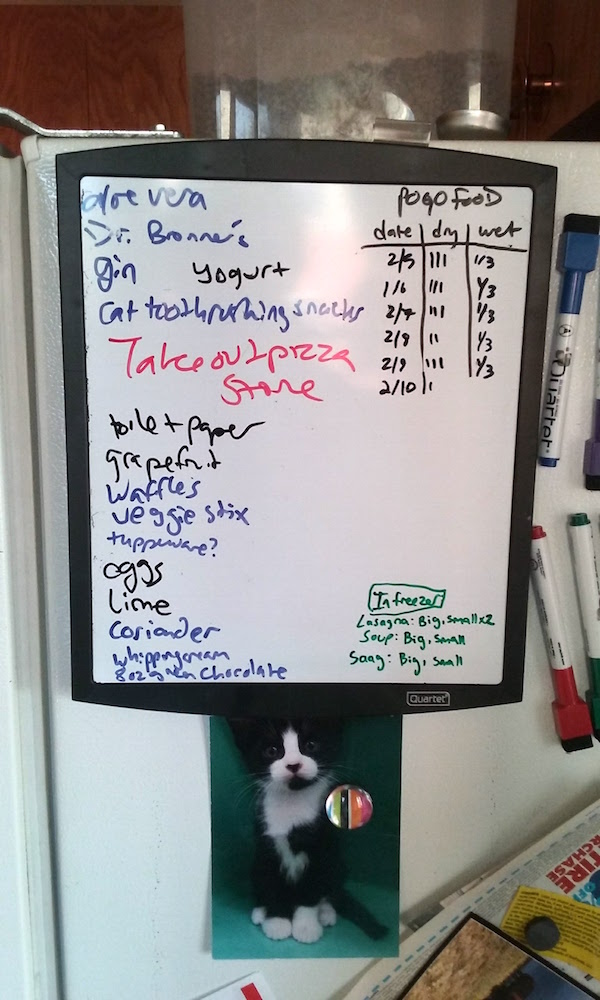 aloe vera
Dr. Bronner's
gin yogurt
cat toothbrushing snacks
Takeout pizza
Stone
toilet paper
grapefruit
waffles
veggie stix
tupperware?
eggs
lime
Coriander
whipping cream
8oz Chocolate
POGO FOOD
date | dry | wet
2/5 | III | 1/3
1/6 | III | 1/3
2/7 | III | 1/3
2/8 | II | 1/3
2/9 | III | 1/3
2/10 | I
In freezer
Lasagna: Big, Small x2
Soup: Big, Small
Saag: Big, Small
Quartet
Quartet